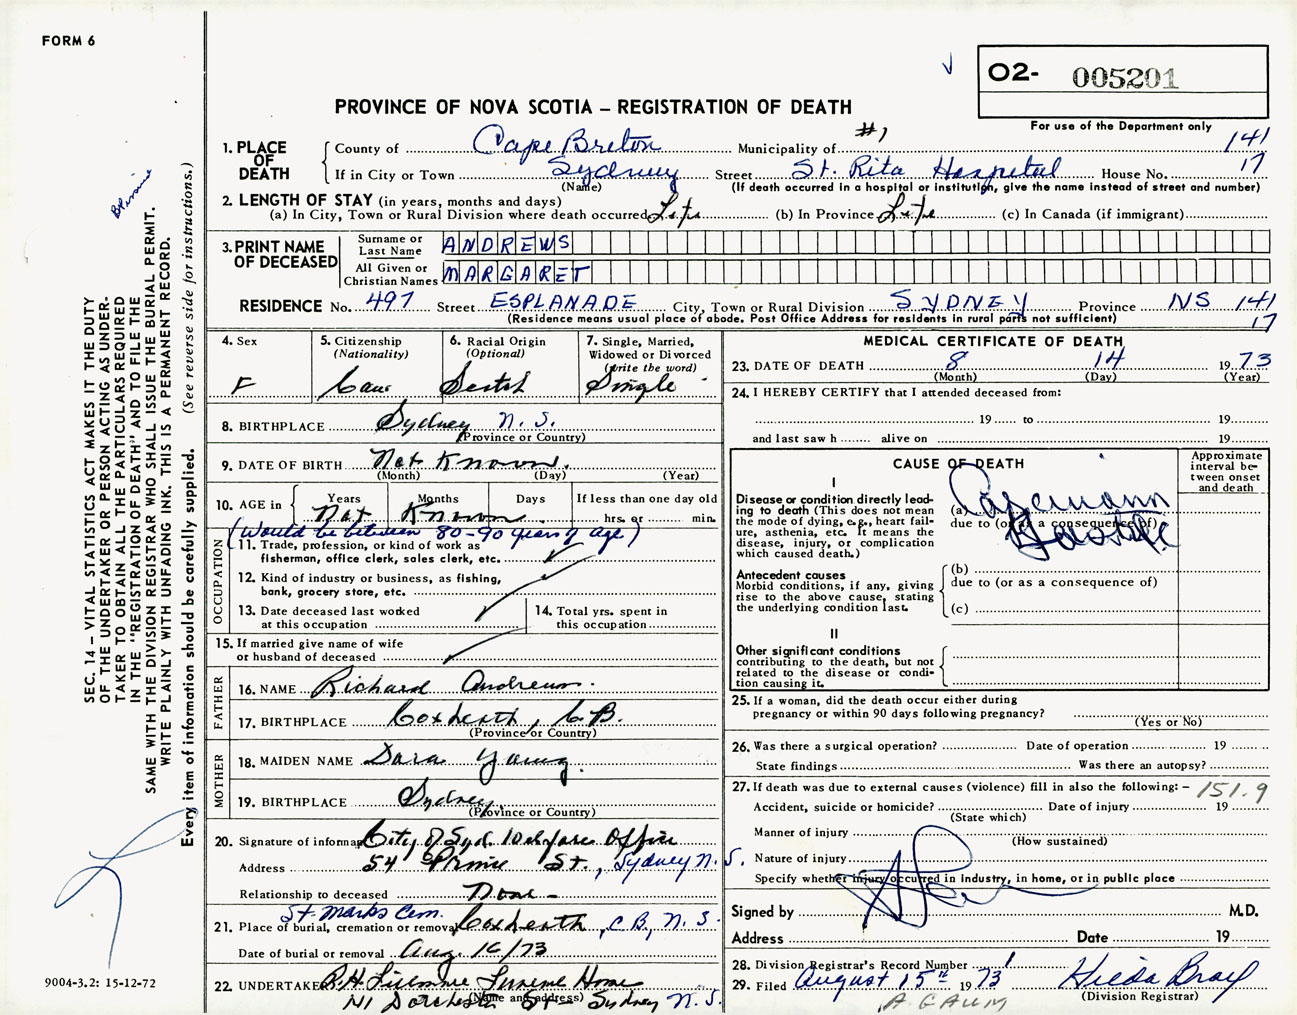 FORM 6
O2- 005201
PROVINCE OF NOVA SCOTIA – REGISTRATION OF DEATH
For use of the Department only
1. PLACE OF DEATH
County of Cape Breton Municipality of #1 141
If in City or Town Sydney Street St. Rita Hospital House No. 17
(Name) (If death occurred in a hospital or institution, give the name instead of street and number)
2. LENGTH OF STAY (in years, months and days)
(a) In City, Town or Rural Division where death occurred Life (b) In Province Life (c) In Canada (if immigrant)
3. PRINT NAME OF DECEASED
Surname or Last Name ANDREWS
All Given or Christian Names MARGARET
RESIDENCE No. 497 Street ESPLANADE City, Town or Rural Division SYDNEY Province NS 141
(Residence means usual place of abode. Post Office Address for residents in rural parts not sufficient) 17
4. Sex
F
5. Citizenship (Nationality)
Can
6. Racial Origin (Optional)
Scotch
7. Single, Married, Widowed or Divorced (write the word)
Single
8. BIRTHPLACE Sydney N.S.
(Province or Country)
9. DATE OF BIRTH Not Known.
(Month) (Day) (Year)
10. AGE in Years Months Days If less than one day old
Not Known. hrs. or min.
(Would be between 80-90 years of age)
OCCUPATION
11. Trade, profession, or kind of work as fisherman, office clerk, sales clerk, etc.
12. Kind of industry or business, as fishing, bank, grocery store, etc.
13. Date deceased last worked at this occupation
14. Total yrs. spent in this occupation
15. If married give name of wife or husband of deceased
FATHER
16. NAME Richard Andrews.
17. BIRTHPLACE Coxheath, C.B.
(Province or Country)
MOTHER
18. MAIDEN NAME Sara Young.
19. BIRTHPLACE Sydney.
(Province or Country)
20. Signature of informant City of Syd. Welfare Office
Address 54 Prince St., Sydney N.S.
Relationship to deceased None –
St. Marks Cem.
21. Place of burial, cremation or removal Coxheath, C.B., N.S.
Date of burial or removal Aug. 16/73
22. UNDERTAKER Home
(Name and address) Dorchester St – Sydney N.S.
MEDICAL CERTIFICATE OF DEATH
23. DATE OF DEATH 8 14 1973
(Month) (Day) (Year)
24. I HEREBY CERTIFY that I attended deceased from:
19 to 19
and last saw h alive on 19
CAUSE OF DEATH
Approximate interval between onset and death
I
Disease or condition directly leading to death (This does not mean the mode of dying, e.g., heart failure, asthenia, etc. It means the disease, injury, or complication which caused death.)
(a)
due to (or as a consequence of)
Antecedent causes
Morbid conditions, if any, giving rise to the above cause, stating the underlying condition last.
(b)
due to (or as a consequence of)
(c)
II
Other significant conditions
contributing to the death, but not related to the disease or condition causing it.
25. If a woman, did the death occur either during pregnancy or within 90 days following pregnancy?
(Yes or No)
26. Was there a surgical operation? Date of operation 19
State findings Was there an autopsy?
27. If death was due to external causes (violence) fill in also the following: – 151.9
Accident, suicide or homicide? Date of injury 19
(State which)
Manner of injury
(How sustained)
Nature of injury
Specify whether injury occurred in Industry, in home, or in public place
Signed by M.D.
Address Date 19
28. Division Registrar's Record Number
29. Filed August 15th 1973 Hilda Bray
(Division Registrar)
SEC. 14 – VITAL STATISTICS ACT MAKES IT THE DUTY
OF THE UNDERTAKER OR PERSON ACTING AS UNDER-
TAKER TO OBTAIN ALL THE PARTICULARS REQUIRED
IN THE "REGISTRATION OF DEATH" AND TO FILE THE
SAME WITH THE DIVISION REGISTRAR WHO SHALL ISSUE THE BURIAL PERMIT.
WRITE PLAINLY WITH UNFADING INK. THIS IS A PERMANENT RECORD.
Every item of information should be carefully supplied. (See reverse side for instructions.)
9004-3.2: 15-12-72